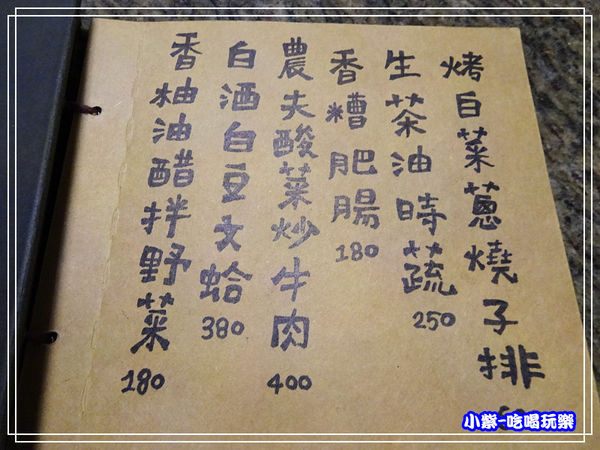 烤白菜蔥燒子排
生茶油時蔬
250
香糟肥腸
180
農夫酸菜炒牛肉
400
白酒白豆文蛤
380
香柚油醋拌野菜
180
小紫-吃喝玩樂